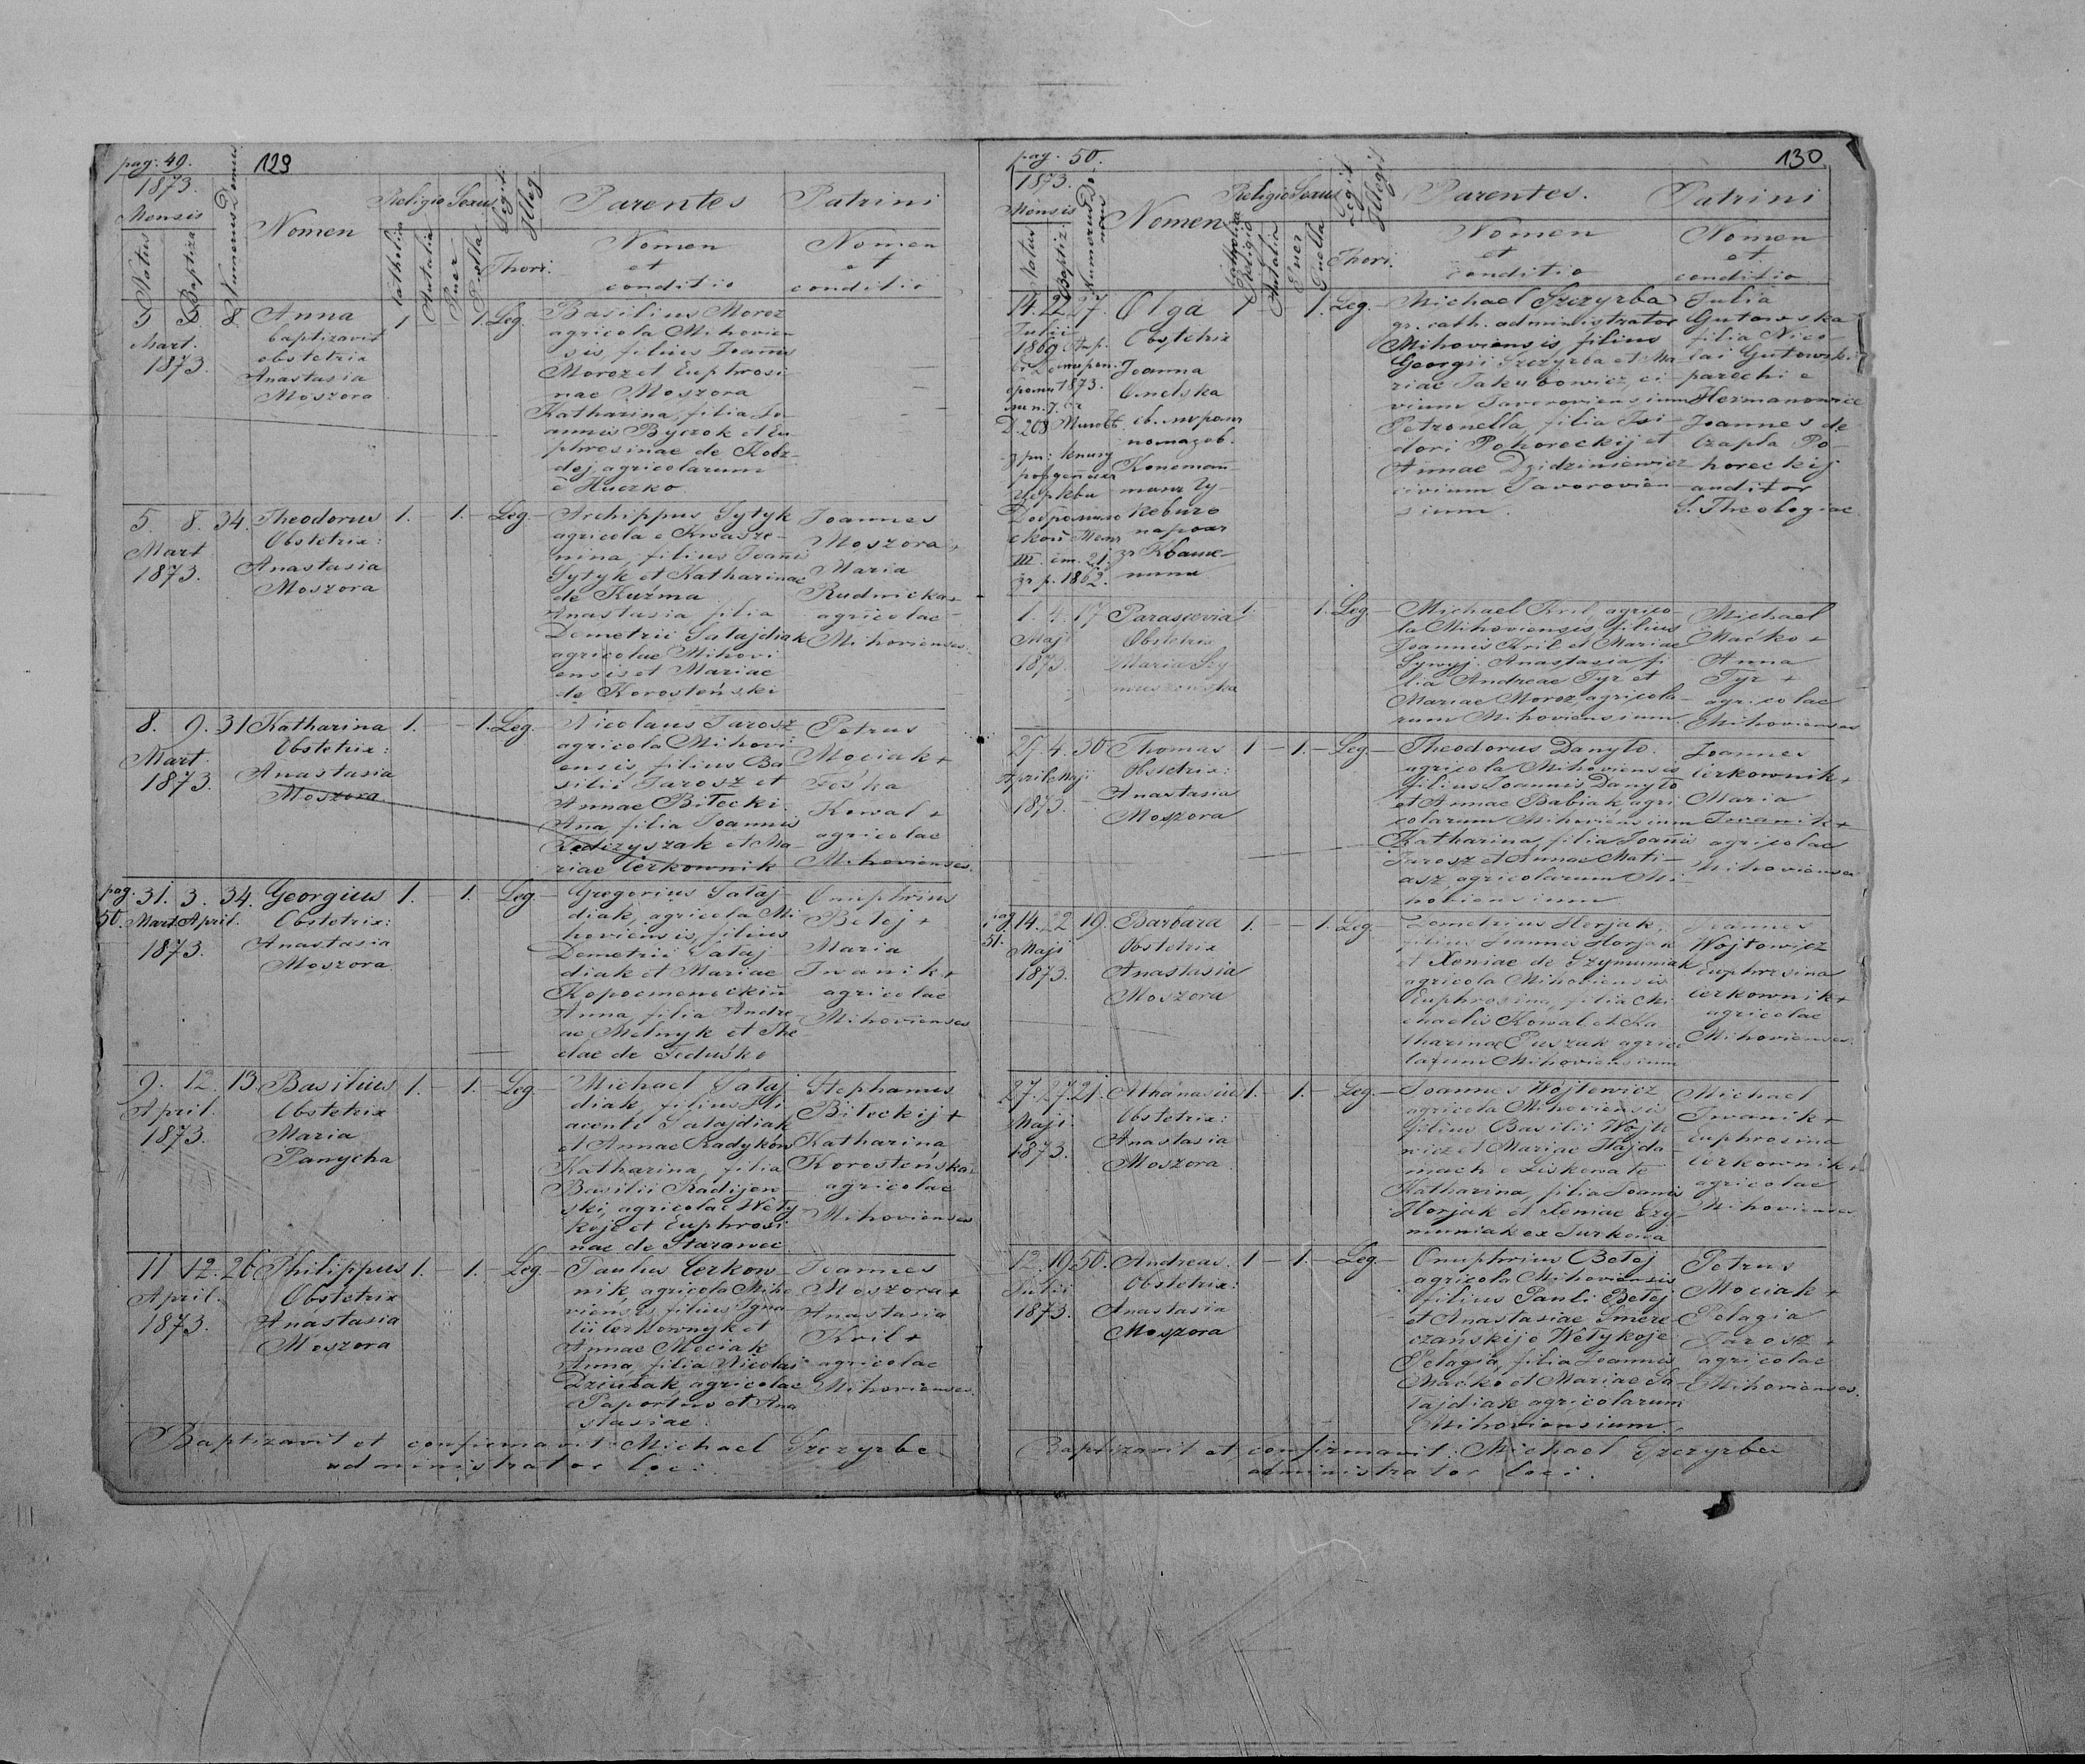 pag. 49.
129
1873.
Mensis
Natus
Baptiza
Numerus Domus
Nomen
Religio
Sexus
Catholica
Autalia
Puer
Puella
Legit:
Illeg.
Thori.
Parentes
Nomen
et
conditio
Patrini
Nomen
et
conditio
5 5 8. Anna 1 — 1. Leg.
Mart.
1873.
baptizavit
obstetrix
Anastasia
Moszora
Basilius Moroz
agricola Mihovien
sis, filius Joañis
Moroz et Euphrosi
nae Moszora
Katharina, filia Jo-
annis Byczok et Eu
phrosinae de Kobz-
dej, agricolarum
e Huczko
5. 8. 34. Theodorus 1. — 1. — Leg.
Mart
1873.
Obstetrix:
Anastasia
Moszora
Archippus Sytyk
agricola e Kwasze-
nina, filius Joanis
Sytyk et Katharinae
de Kuźma
Anastasia filia
Demetrii Sałajdiak
agricolae Mihovi
ensis et Mariae
de Korosteński
Joannes
Moszora +
Maria
Rudnicka +
agricolae
Mihovienses.
8. 9. 31 Katharina 1. — 1. Leg.
Mart
1873.
Obstetrix:
Anastasia
Moszora
Nicolaus Jarosz
agricola Mihovi
ensis, filius Ba
silii Jarosz et
Annae Biłecki.
Aña, filia Joannis
Fedizyszak et Ma-
riae Cerkownik
Petrus
Mociak +
Feśka
Kowal +
agricolae
Mihovienses.
pag.
50.
31. 3. 34. Georgius 1. — 1. — Leg.
Mart. April.
1873.
Obstetrix:
Anastasia
Moszora
Gregorius Sałaj-
diak, agricola Mi
hoviensis, filius
Demetrii Sałaj
diak et Mariae
Anna, filia Andre
ae Melnyk et The
clae de Feduśko
Onuphrius
Bełej +
Maria
Iwanik +
agricolae
Mihovienses
9. 12. 13. Basilius 1. — 1. — Leg.
April.
1873.
Obstetrix
Maria
Panycha
Michael Sałaj
diak, filius Hi
acenti Sałajdiak
et Annae Radykow
Katharina, filia
Basilii Radijew
ski, agricolae Weły
koje et Euphrosi
nae de Starawec
Stephanus
Biłeckij +
Katharina
Korosteńska
agricolae
Mihovienses
11 12. 26 Philippus 1. — 1. — Leg.
April.
1873.
Obstetrix
Anastasia
Moszora
Paulus Cerkow-
nik, agricola Miho
viensis, filius Igna-
tii Cerkownyk et
Annae Mociak
Anna, filia Nicolai
Dziubak, agricolae
Paportno et Ana
stasiae.
Joannes
Moszora +
Anastasia
Kril +
agricolae
Mihovienses.
Baptizavit et confirmavit: Michael Szczyrba
administrator loci.
pag. 50.
130
1873.
Mensis
Natus
Baptiz.
Numerus Do-
mus
Nomen
Religio
Sexus
Catholica
Religio
Autalia
Puer
Puella
Legit
Illegit
Thori.
Parentes.
Nomen
et
conditio
Patrini
Nomen
et
conditio
14. 22 27. Olga 1 — 1. Leg.
Julii
1869
1873.
Obstetrix
Joanna
III. 21.
1862.
Michael Szczyrba
gr. cath. administrator
Mihoviensis, filius
Georgii Szczyrba et Ma-
riae Jakubowicz, ci-
vium Javoroviensium
Petronella, filia Isi-
dori Pohoreckij et
Annae Dzidziniewicz
civium Javorovien
sium.
Julia
Gutowska
filia Nico-
lai Gutowski
parochi e
Hermanowice
Joannes de
Czapla Po-
horeckij
auditor
S. Theologiae
1. 4. 17 Parascevia 1. — 1. Leg.
Maji
1873.
Obstetrix
Maria Szy
Michael Kril, agrico-
la Mihoviensis filius
Joannis Kril et Mariae
Sywyj. Anastasia fi
lia Andreae Tyr et
Mariae Moroz, agricola-
rum Mihoviensium.
Michael
Maćko +
Anna
Tyr +
agricolae
Mihovienses
27. 4. 30 Thomas 1 — 1. — Leg.
April. Maji
1873.
Obstetrix:
Anastasia
Moszora
Theodorus Danyło.
agricola Mihoviensis
filius Joannis Danyło
et Annae Babiak, agri
colarum Mihoviensium
Katharina, filia Joañis
Jarosz et Annae Mati-
asz, agricolarum Mi-
hoviensium
Joannes
Cerkownik +
Maria
Iwanik +
agricolae
Mihovienses
pag.
51.
14. 22 19. Barbara 1. — 1. Leg.
Maji
1873.
Obstetrix
Anastasia
Moszora
Demetrius Horjak,
filius Joannis Horjak
et Xeniae de Szymuniak
agricola Mihoviensis
Euphrosina, filia Mi
chaelis Kowal et Ka
tharinae Puszak agrico
larum Mihoviensium
Joannes
Wojtowicz
Euphrosina
Cerkownik +
agricolae
Mihovienses.
27. 27. 21. Athanasius 1. — 1. — Leg.
Maji.
1873.
Obstetrix:
Anastasia
Moszora
Joannes Wojtowicz
agricola Mihoviensis
filius Basilii Wojto
wicz et Mariae Hajda-
mach e Liskowate
Katharina, filia Joanis
Horjak et Xeniae Szy-
muniak ex Turkowa
Michael
Iwanik +
Euphrosina
Cerkownik +
agricolae
Mihovienses
12. 19. 50. Andreas. 1 — 1. — Leg.
Julii
1873.
Obstetrix:
Anastasia
Moszora
Onuphrius Bełej
agricola Mihoviensis
filius Pauli Bełej
et Anastasiae Smere
czańskij e Wełykoje
Pelagia, filia Joannis
Maćko et Mariae Sa
łajdiak agricolarum
Mihoviensium.
Petrus
Mociak +
Pelagia
Jarosz +
agricolae
Mihovienses.
Baptizavit et confirmavit: Michael Szczyrba
administrator loci.